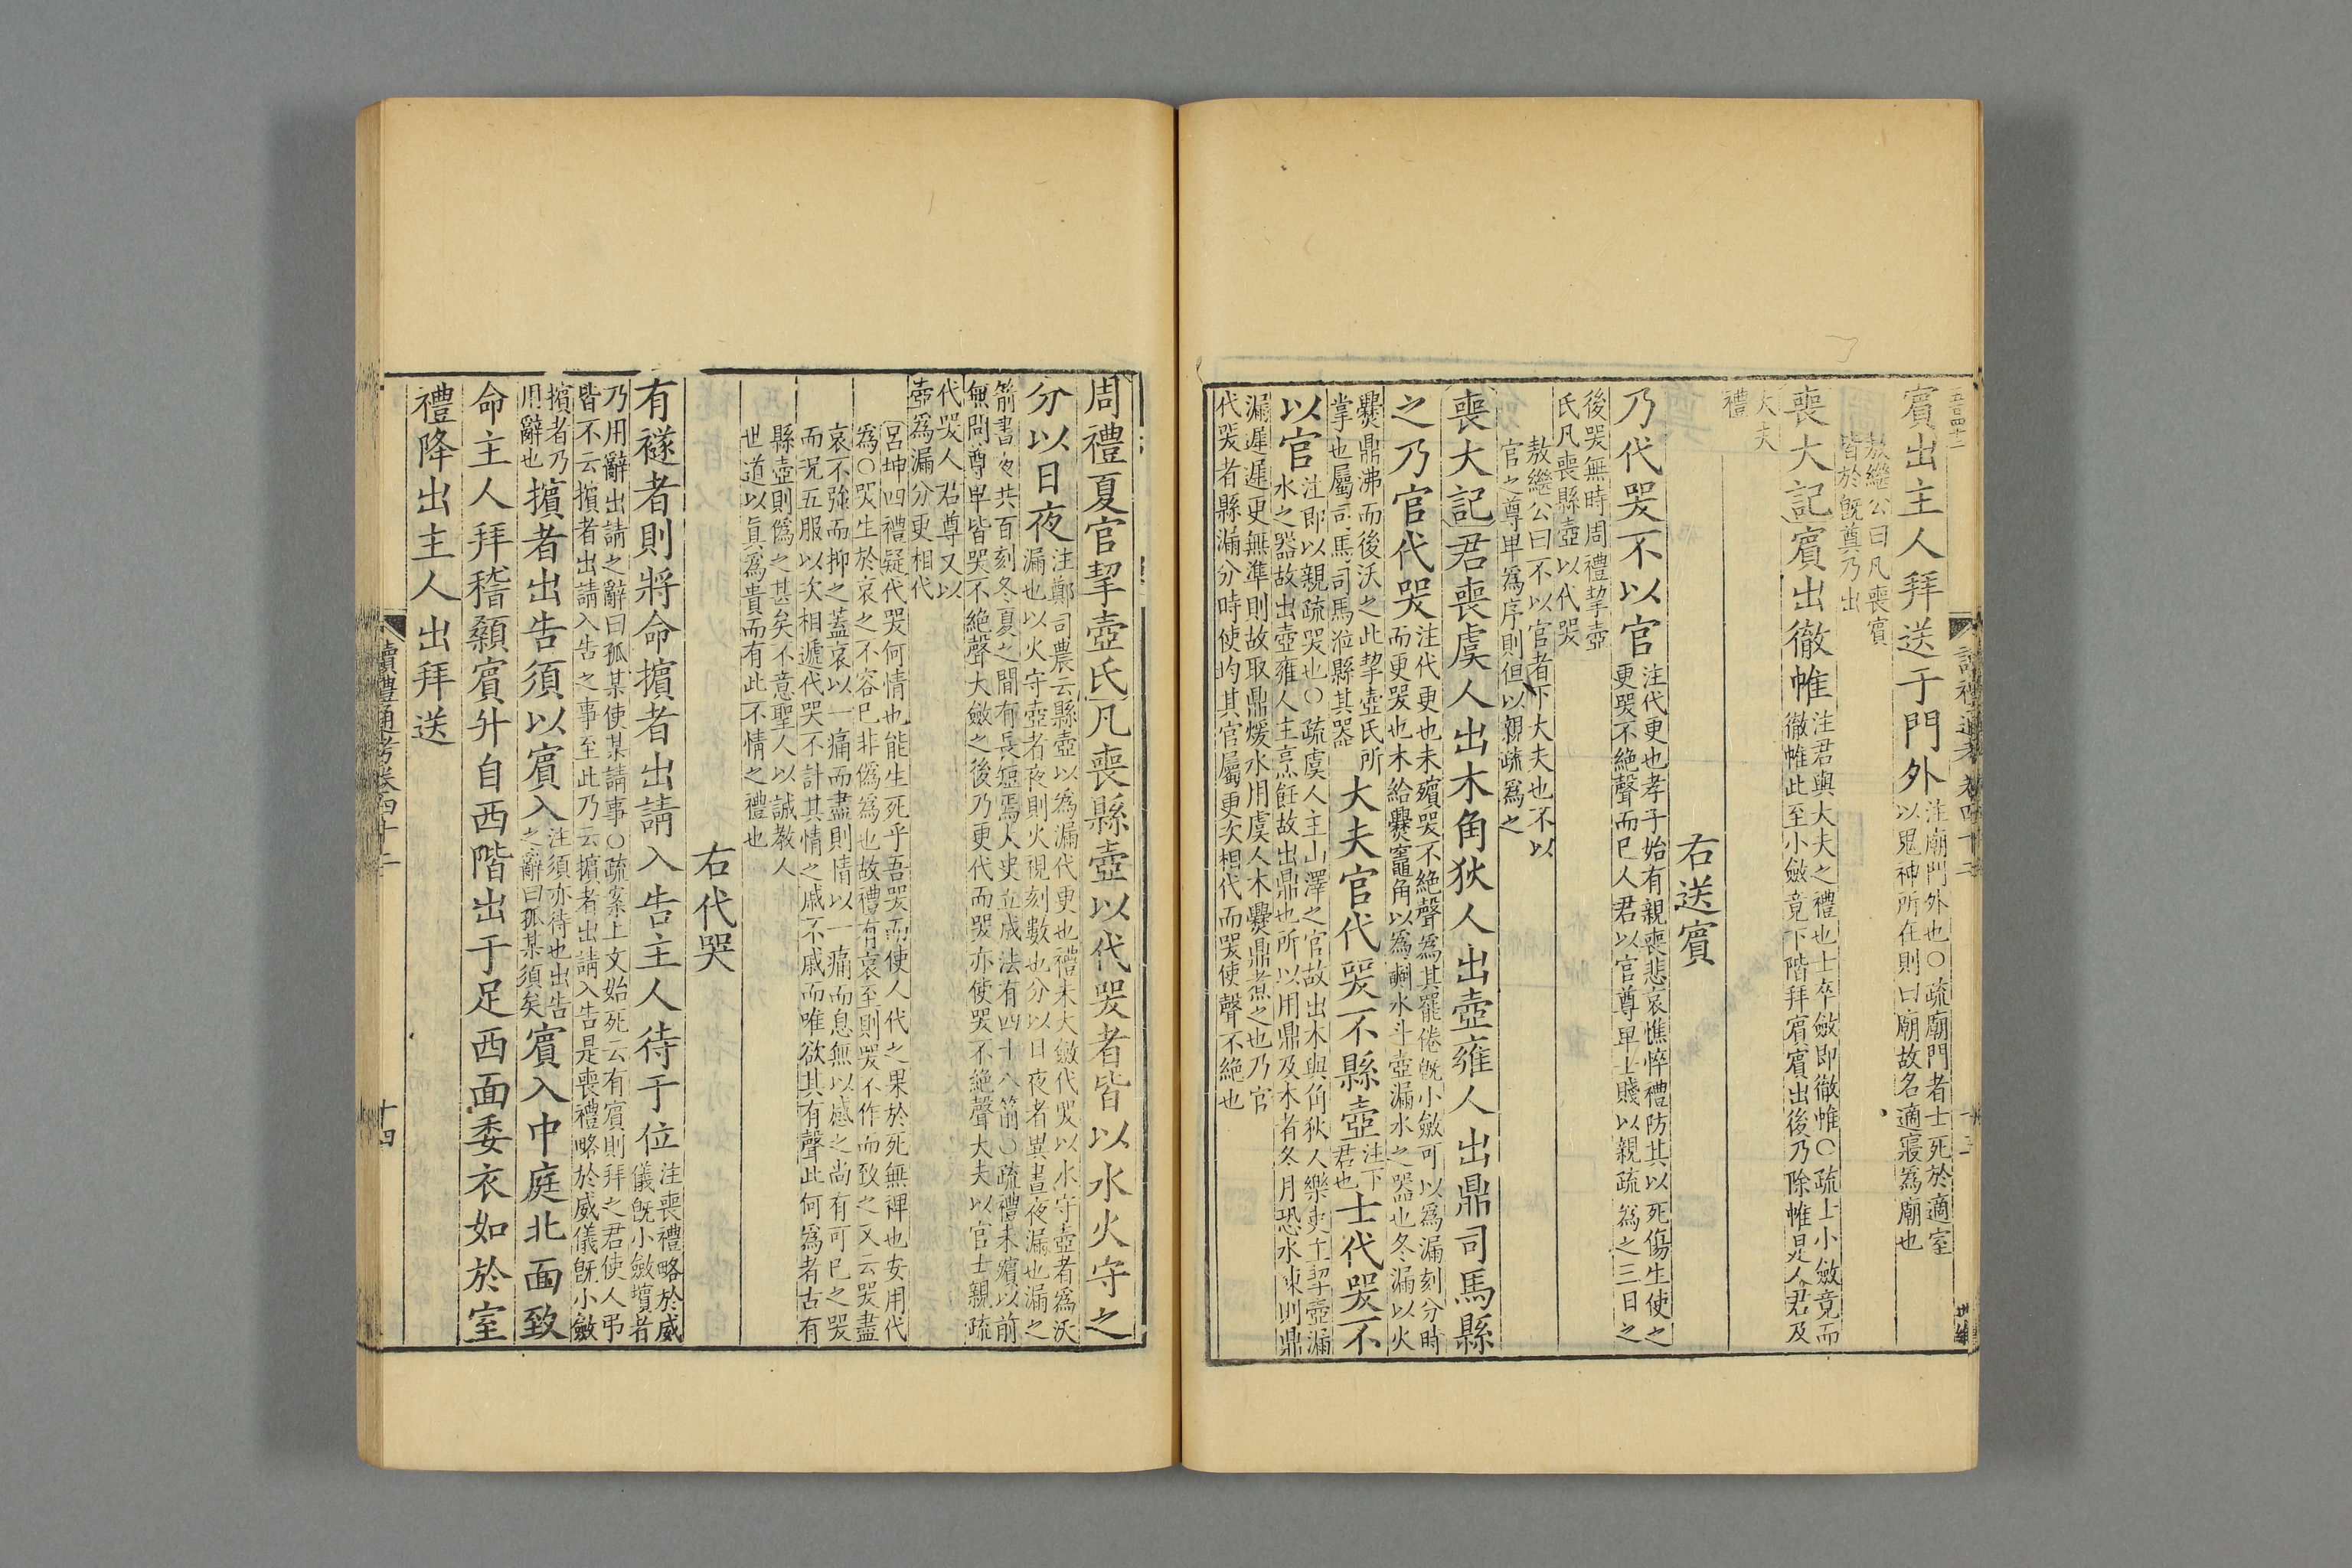 五百四十二
讀禮通考卷四十二
十三
賓出主人拜送于門外注廟門外也○疏廟門者士死於適室
以鬼神所在則曰廟故名適寢爲廟也
敖繼公曰凡喪賓
皆於旣奠乃出
喪大記賓出徹帷注君與大夫之禮也士卒斂即徹帷○疏上小斂竟而
徹帷此至小斂竟下階拜賓賓出後乃除帷是人君及
大夫
禮
右送賓
乃代哭不以官注代更也孝子始有親喪悲哀憔悴禮防其以死傷生使之
更哭不絶聲而已人君以官尊卑士賤以親疏爲之三日之
後哭無時周禮挈壺
氏凡喪縣壺以代哭
敖繼公曰不以官者下大夫也不以
官之尊卑爲序則但以親疏爲之
喪大記君喪虞人出木角狄人出壺雍人出鼎司馬縣
之乃官代哭注代更也未殯哭不絶聲爲其罷倦旣小斂可以爲漏刻分時
而更哭也木給爨竈角以爲㪺水斗壺漏水之器也冬漏以火
爨鼎沸而後沃之此挈壺氏所
掌也屬司馬司馬涖縣其器
大夫官代哭不縣壺注下
君也
士代哭不
以官注即以親疏哭也○疏虞人主山澤之官故出木與角狄人樂吏主挈壺漏
水之器故出壺雍人主烹飪故出鼎也所以用鼎及木者冬月恐水凍則鼎
漏遲遲更無準則故取鼎煖水用虞人木爨鼎煮之也乃官
代哭者縣漏分時使均其官屬更次相代而哭使聲不絶也
周禮夏官挈壺氏凡喪縣壺以代哭者皆以水火守之
分以日夜注鄭司農云縣壺以爲漏代更也禮未大斂代哭以水守壺者爲沃
漏也以火守壺者夜則火視刻數也分以日夜者異晝夜漏也漏之
箭晝夜共百刻冬夏之間有長短焉太史立成法有四十八箭○疏禮未殯以前
無問尊卑皆哭不絶聲大斂之後乃更代而哭亦使哭不絶聲大夫以官士親疏
代哭人君尊又以
壺爲漏分更相代
呂坤四禮疑代哭何情也能生死乎吾哭而使人代之果於死無裨也安用代
爲○哭生於哀之不容已非僞爲也故禮有哀至則哭不作而致之又云哭盡
哀不強而抑之蓋哀以一痛而盡則情以一痛而息無以感之尚有可已之哭
而況五服以次相遞代哭不計其情之戚不戚而唯欲其有聲此何爲者古有
縣壺則僞之甚矣不意聖人以誠教人
世道以眞爲貴而有此不情之禮也
右代哭
有襚者則將命擯者出請入告主人待于位注喪禮略於威
儀旣小斂擯者
乃用辭出請之辭曰孤某使某請事○疏案上文始死云有賓則拜之君使人弔
皆不云擯者出請入告之事至此乃云擯者出請入告是喪禮略於威儀旣小斂
擯者乃
用辭也
擯者出告須以賓入注須亦待也出告
之辭曰孤某須矣
賓入中庭北面致
命主人拜稽顙賓升自西階出于足西面委衣如於室
禮降出主人出拜送
讀禮通考卷四十二
十四